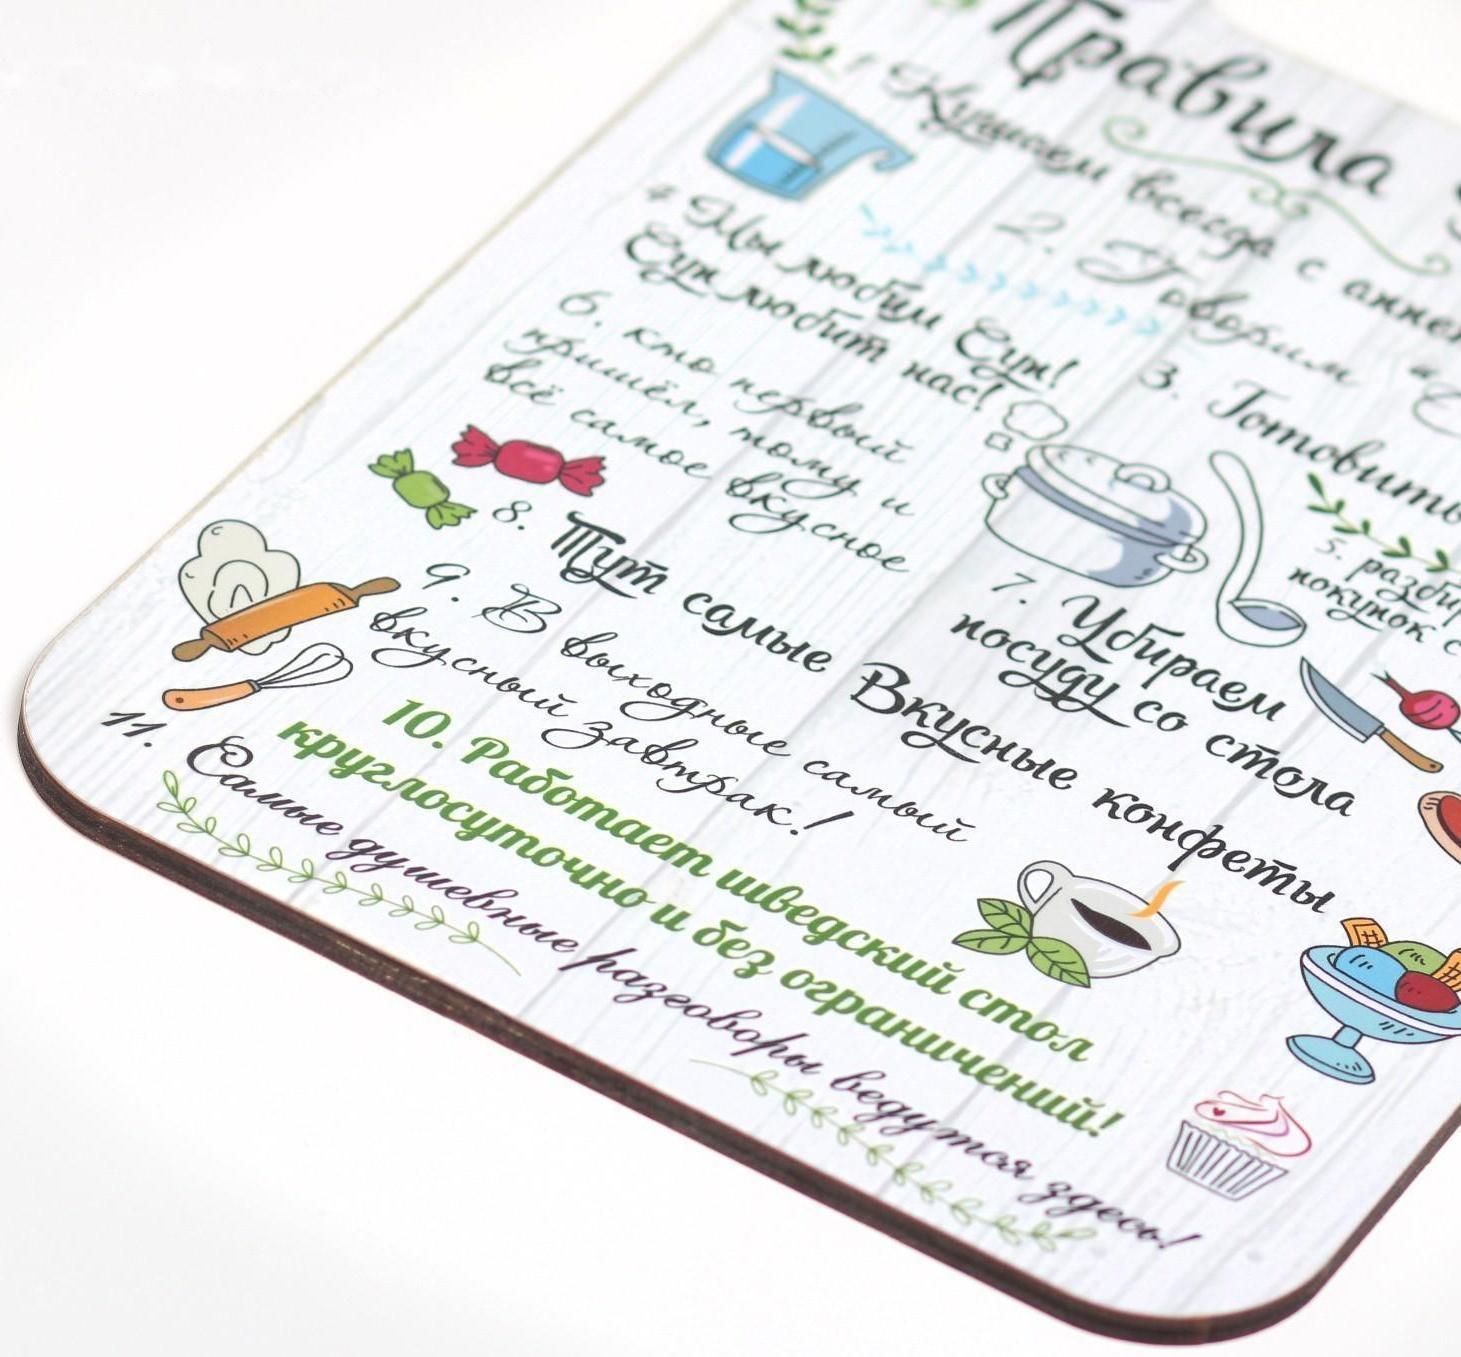 Правила
1 Кушаем всегда с
2. Говорим
3. Готовить
4 Мы любим Суп!
Суп любит нас!
5. 
покупок с
6. кто первый
пришёл, тому и
всё самое вкусное
7. Убираем
посуду со стола
8. Тут самые Вкусные конфеты
9. В выходные самый
вкусный завтрак!
10. Работает шведский стол
круглосуточно и без ограничений!
11. Самые душевные разговоры ведутся здесь!